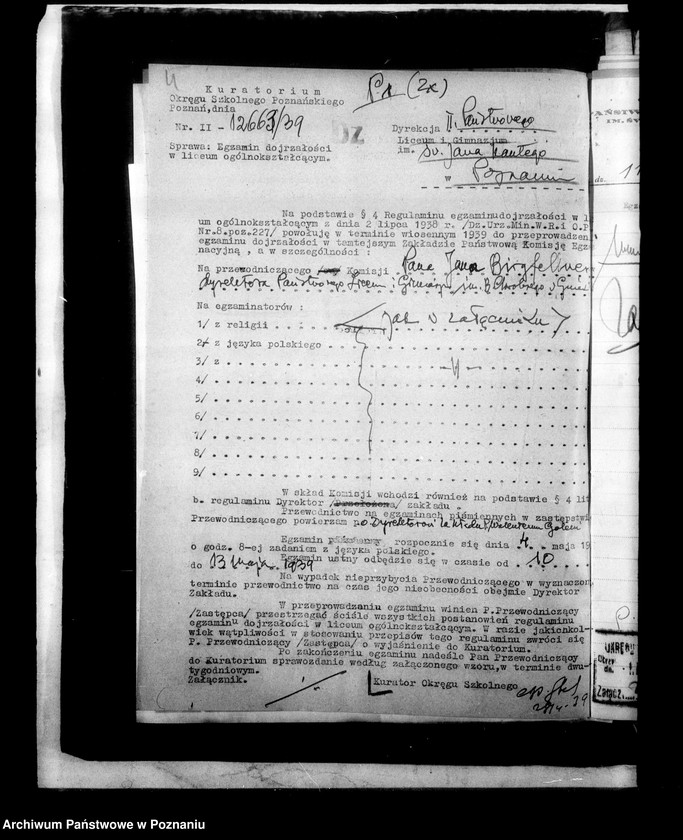 4
P1 (2x)
Kuratorium
Okręgu Szkolnego Poznańskiego
Poznań,dnia
Nr. II - 12663/39
DZ
Dyrekcja II. Państwowego
Liceum i Gimnazjum
im. św. Jana Kantego
w Poznaniu
Sprawa: Egzamin dojrzałości
w liceum ogólnokształcącym.
Na podstawie § 4 Regulaminu egzaminu dojrzałości w l
um ogólnokształcącym z dnia 2 lipca 1938 r. /Dz.Urz.Min.W.R.i O.P
Nr.8.poz.227/ powołuję w terminie wiosennym 1939 do przeprowadzen
egzaminu dojrzałości w tamtejszym Zakładzie Państwową Komisję Egz
nacyjną , a w szczególności :
Na przewodniczącego Komisji Pana Jana Birgfellner
dyrektora Państwowego Liceum i Gimnazj. im. B. Chrobrego w Gnie
Na egzaminatorów :
1/ z religii jak w załączniku
2/ z języka polskiego
3/ z
4/
5/
6/
7/
8/
9/
W skład Komisji wchodzi również na podstawie § 4 lit
b. regulaminu Dyrektor /Przełożona/ zakładu .
Przewodnictwo na egzaminach piśmiennych w zastępstwi
Przewodniczącego powierzam p. Dyrektorowi Zakładu
Egzamin piśmienny rozpocznie się dnia 4. maja 19
o godz. 8-ej zadaniem z języka polskiego.
Egzamin ustny odbędzie się w czasie od 10
do 13 maja 1939
Na wypadek nieprzybycia Przewodniczącego w wyznaczon
terminie przewodnictwo na czas jego nieobecności obejmie Dyrektor
Zakładu.
W przeprowadzaniu egzaminu winien P.Przewodniczący
/Zastępca/ przestrzegać ściśle wszystkich postanowień regulaminu
egzaminu dojrzałości w liceum ogólnokształcącym. W razie jakichkol-
wiek wątpliwości w stosowaniu przepisów tego regulaminu zwróci się
P. Przewodniczący /Zastępca/ o wyjaśnienie do Kuratorium.
Po zakończeniu egzaminu nadeśle Pan Przewodniczący
do Kuratorium sprawozdanie według załączonego wzoru,w terminie dwu-
tygodniowym.
Załącznik.
Kurator Okręgu Szkolnego
OKRĘGU
Załącz.
Archiwum Państwowe w Poznaniu